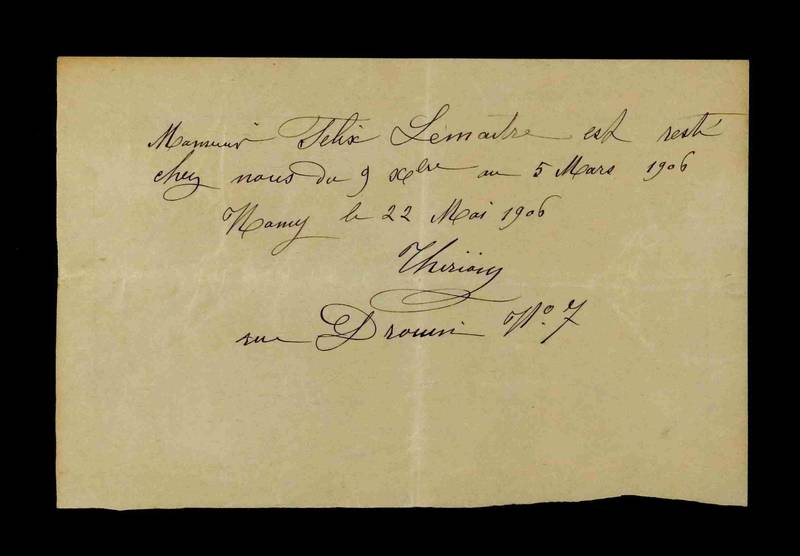 Monsieur Félix Lemaître est resté
chez nous du 9 Xbre au 5 Mars 1906
Nancy le 22 Mai 1906
Thirion
rue Drouin No. 7